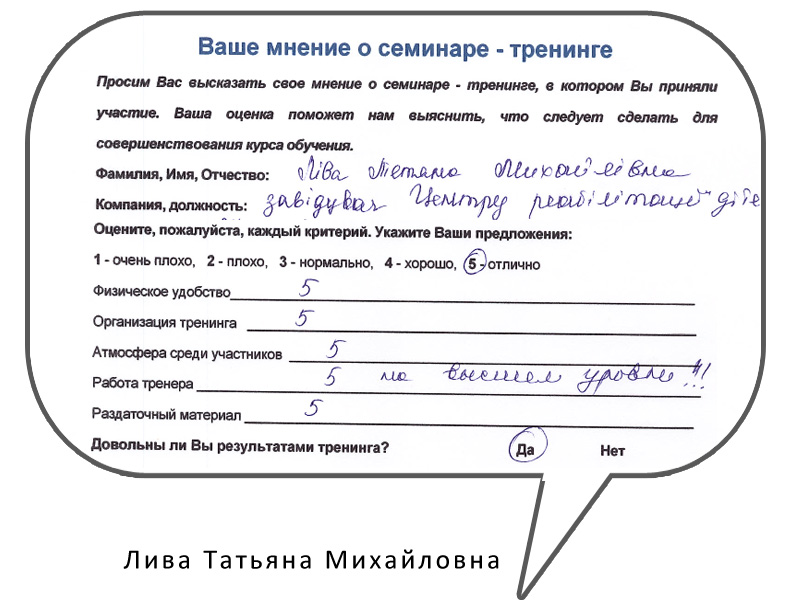 Ваше мнение о семинаре - тренинге
Просим Вас высказать свое мнение о семинаре - тренинге, в котором Вы приняли
участие. Ваша оценка поможет нам выяснить, что следует сделать для
совершенствования курса обучения.
Фамилия, Имя, Отчество: Ліва Тетяна Михайлівна
Компания, должность: завідувач Центру реабілітації діте
Оцените, пожалуйста, каждый критерий. Укажите Ваши предложения:
1 - очень плохо, 2 - плохо, 3 - нормально, 4 - хорошо, 5 - отлично
Физическое удобство 5
Организация тренинга 5
Атмосфера среди участников 5
Работа тренера 5 на высшем уровне!!!
Раздаточный материал 5
Довольны ли Вы результатами тренинга? Да Нет
Лива Татьяна Михайловна